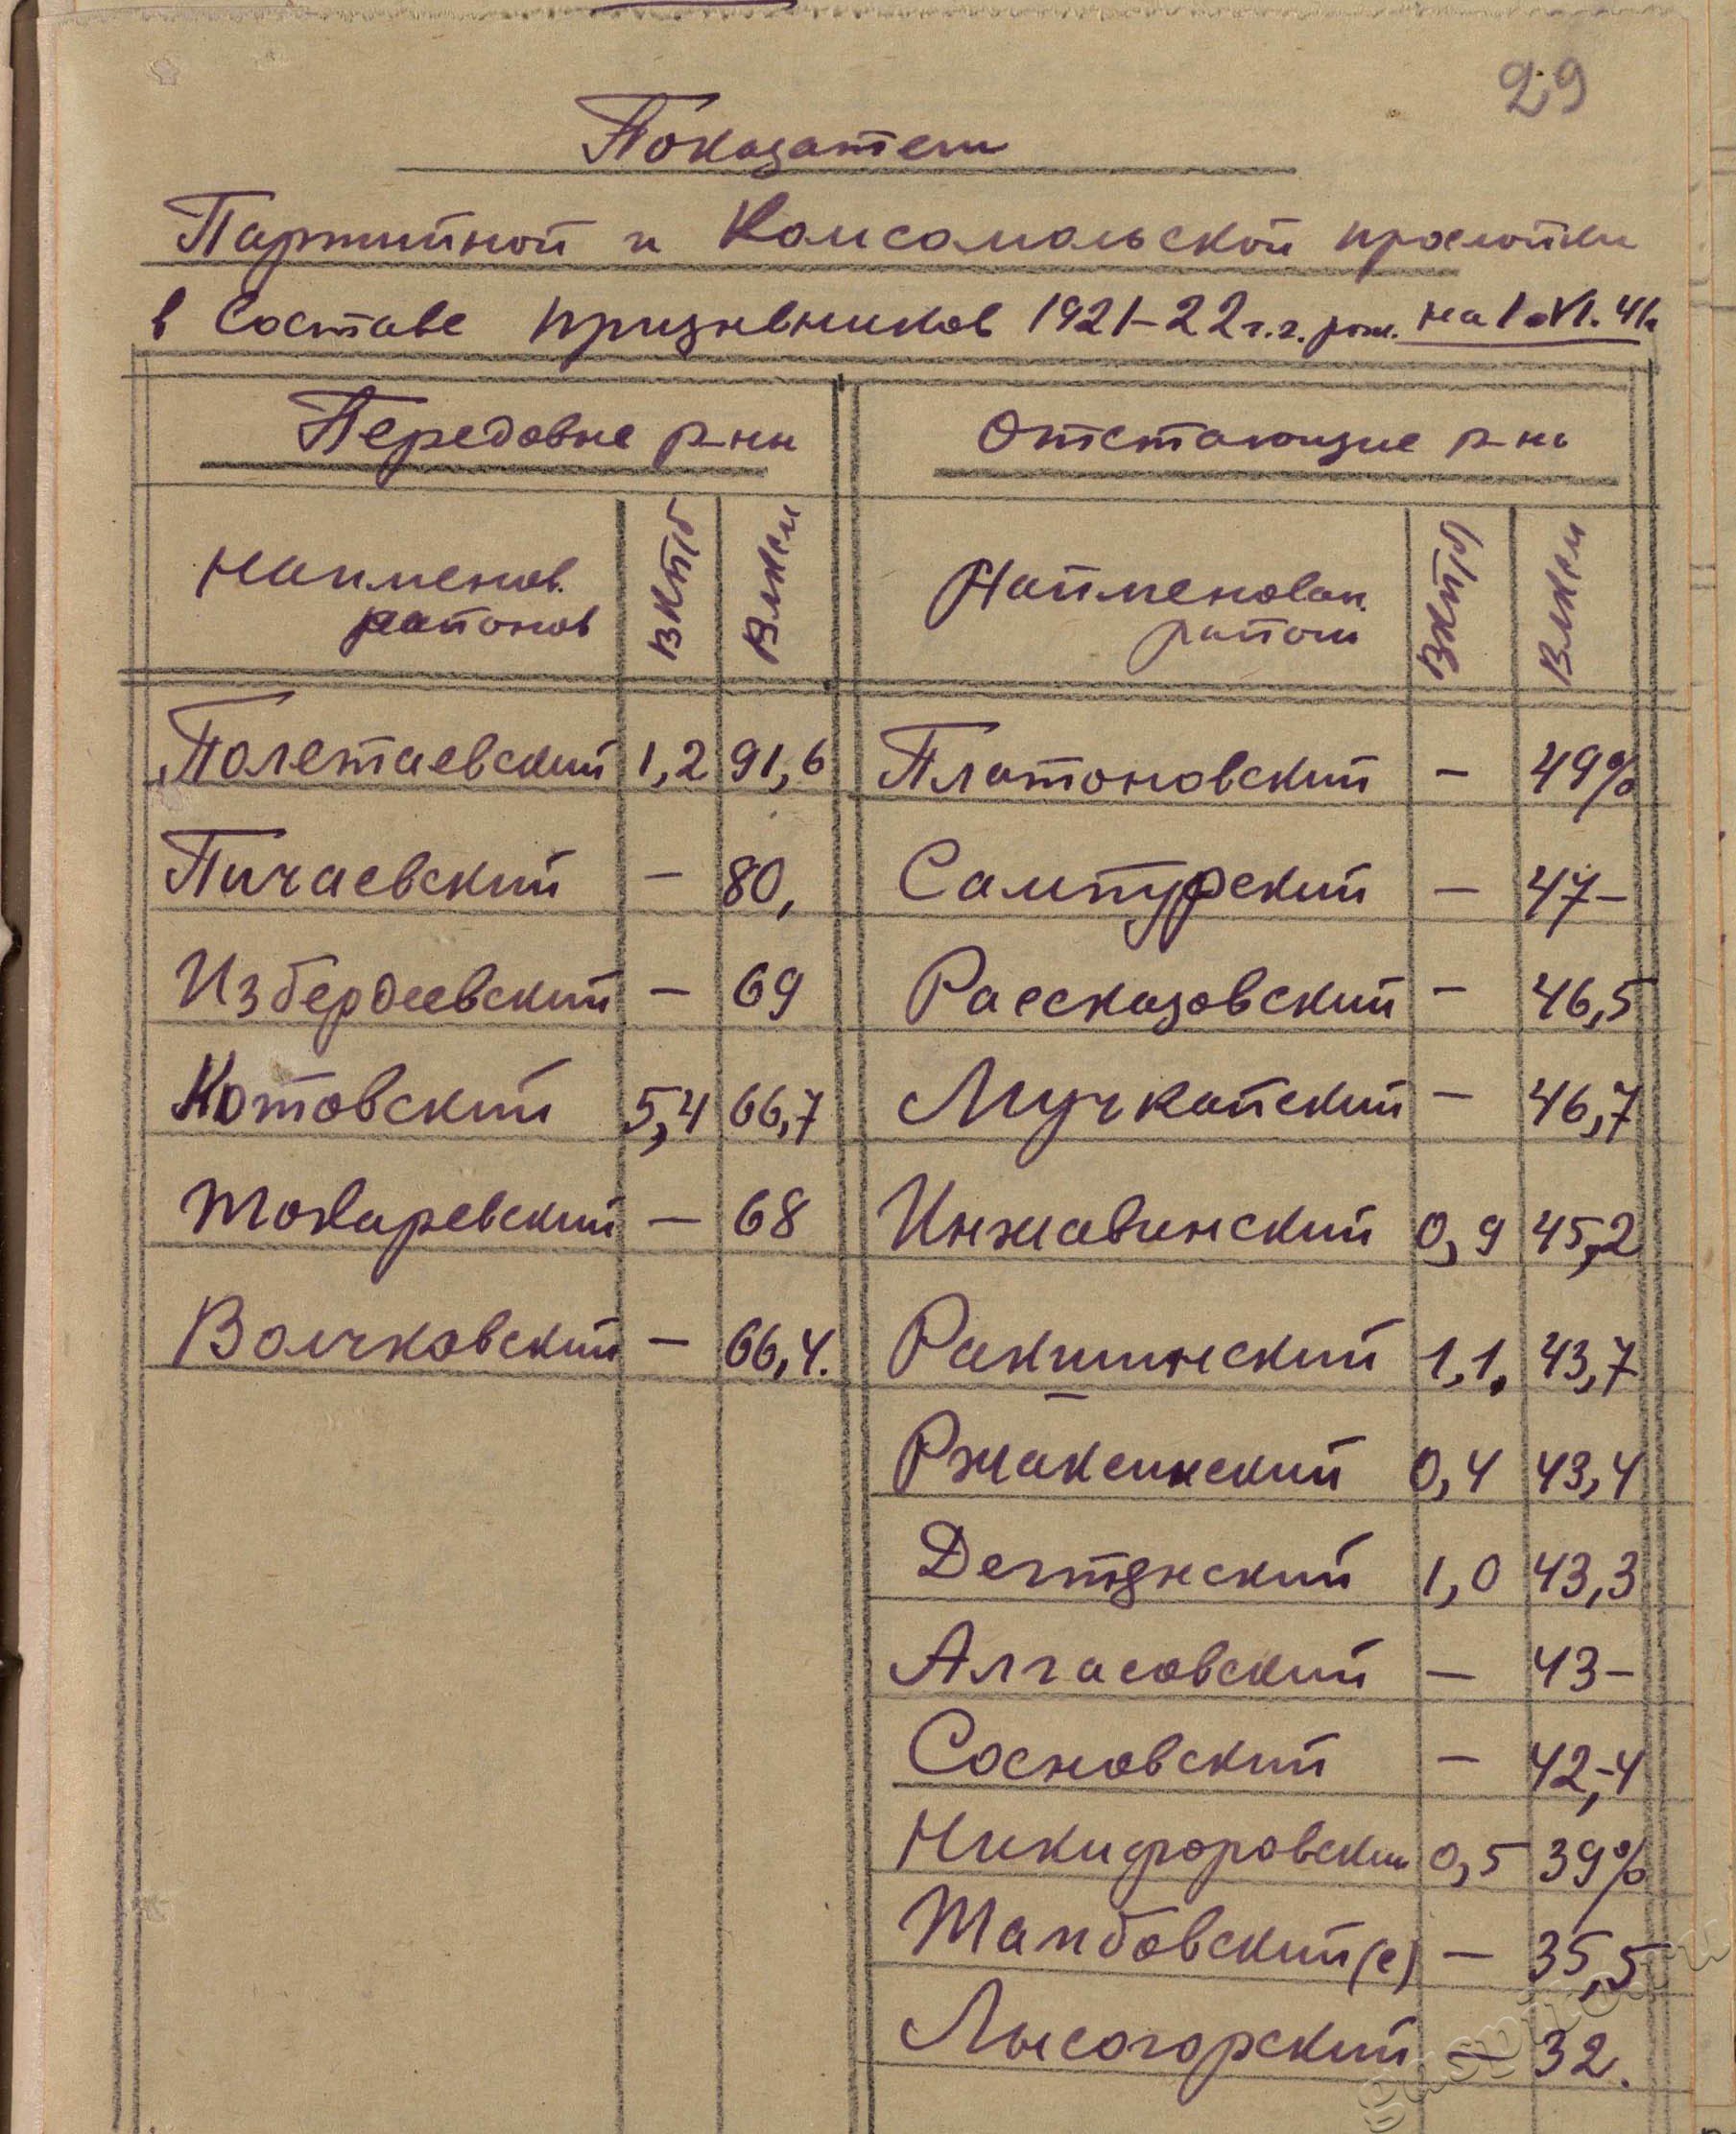 29
Показатели
Партийной и Комсомольской прослойки
в составе призывников 1921-22 г.г. рож. на 1.VI.41г.
Передовые р-ны
Отстающие р-ны
Наименов. районов
ВКП/б
ВЛКСМ
Наименован. район
ВКП/б
ВЛКСМ
Полетаевский 1,2 91,6
Платоновский - 49%
Пичаевский - 80,
Сампурский - 47-
Избердеевский - 69
Рассказовский - 46,5
Котовский 5,4 66,7
Мучкапский - 46,7
Токаревский - 68
Инжавинский 0,9 45,2
Волчковский - 66,4.
Ракшинский 1,1. 43,7
Ржаксинский 0,4 43,4
Дегтянский 1,0 43,3
Алгасовский - 43-
Сосновский - 42,-4
Никифоровский 0,5 39%
Тамбовский (с) - 35,5
Лысогорский - 32.